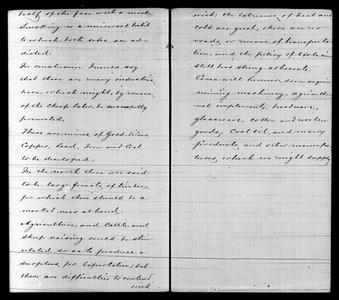 half of the face with a mask.
Smoking is a universal habit
to which both sexes are ad-
dicted.
In conclusion I would say
that there are many industries
here which might, by means
of the cheap labor, be successfully
promoted.
There are mines of Gold, Silver,
Copper, Lead, Iron and Coal
to be developed.
In the north there are said
to be large forests of timber,
for which there should be a
market near at hand.
Agriculture, and Cattle and
sheep raising could be stim-
ulated so as to produce a
surplus for Exportation, but
there are difficulties to contend
with
with, the extremes of heat and
cold are great, there are no
roads, or means of transporta-
tion and the policy of isolation
still has strong adherents.
Corea will however soon require
mining machinery, agricultu-
ral implements, hardware,
glassware, cotton and woolen
goods, Coal Oil, and many
products, and other manufac-
tures, which we might supply